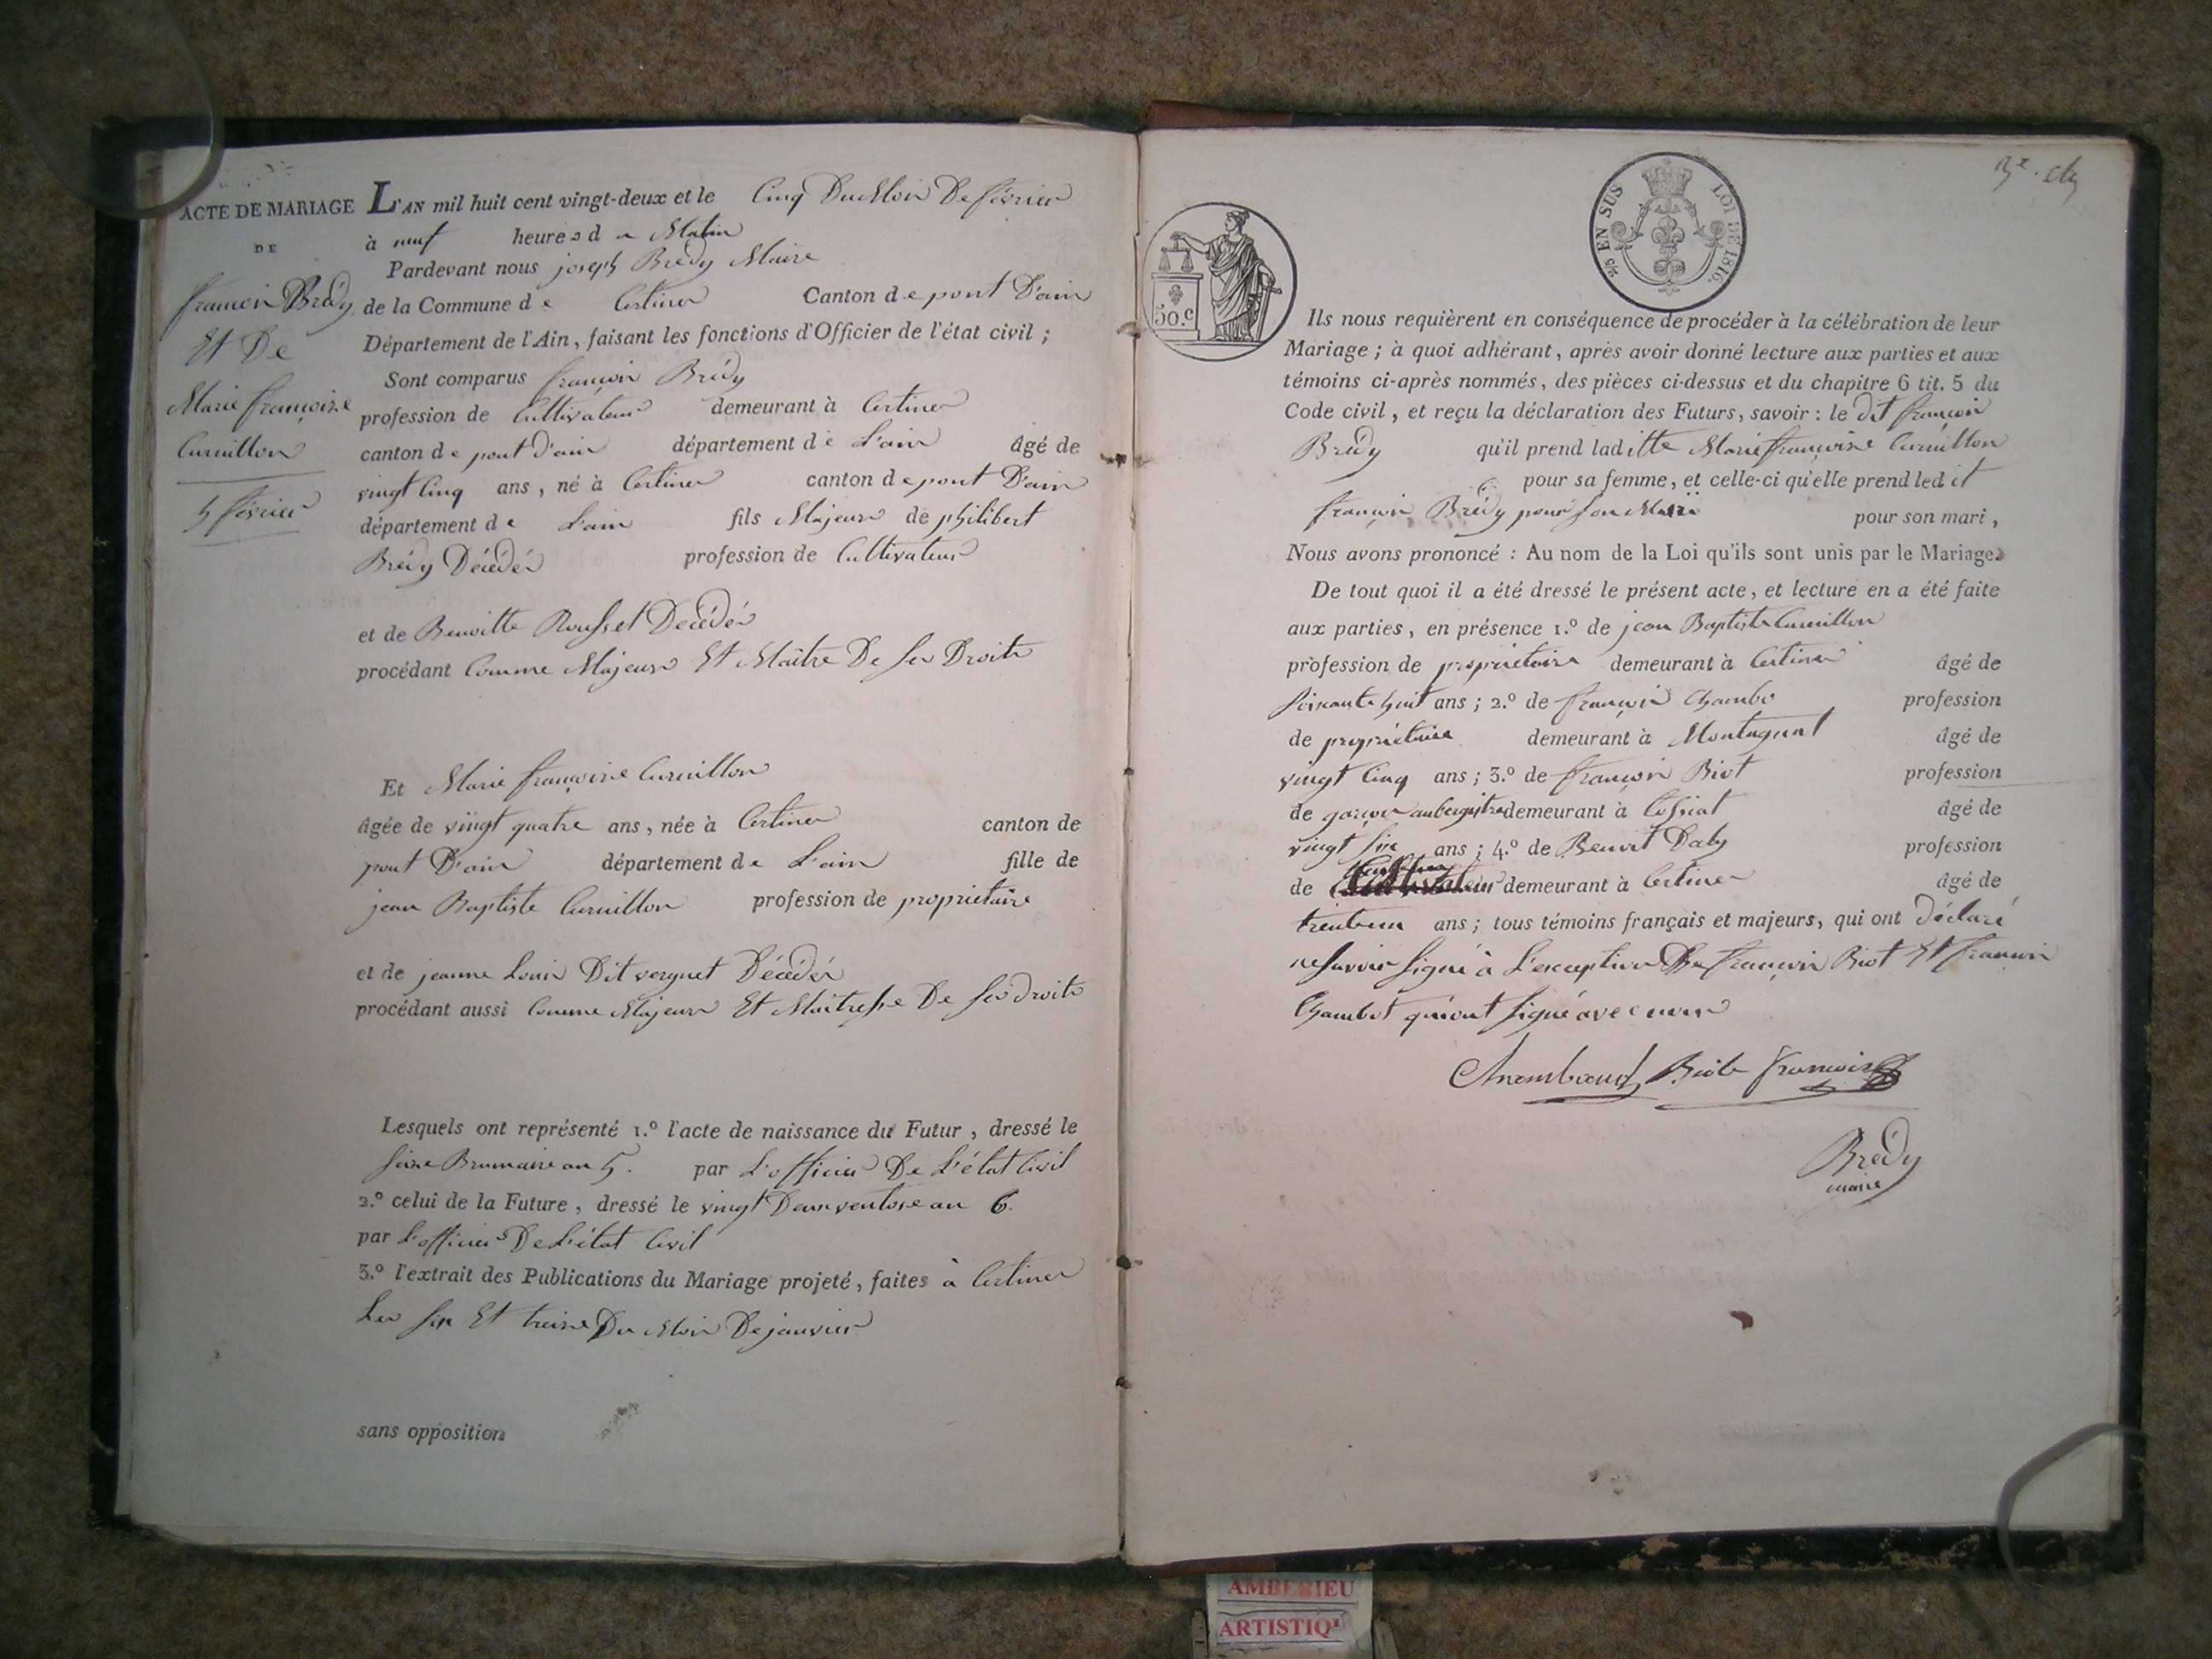 ACTE DE MARIAGE
DE
françois Brédy
Et De
Marie françoise
Curnillon
5 février
L'AN mil huit cent vingt-deux et le Cinq Du Mois De février
à neuf heures du Matin
Pardevant nous joseph Brédy Maire
de la Commune de Certines Canton de pont D'ain
Département de l'Ain, faisant les fonctions d'Officier de l'état civil ;
Sont comparus françois Brédy
profession de Cultivateur demeurant à Certines
canton de pont d'ain département de L'ain âgé de
vingt Cinq ans, né à Certines canton de pont D'ain
département de L'ain fils Majeur de philibert
Brédy Décédés profession de Cultivateur
et de Benoitte Rousset Décédés
procédant Comme Majeur Et Maitre De ses Droits
Et Marie françoise Curnillon
âgée de vingt quatre ans, née à Certines canton de
pont D'ain département de L'ain fille de
jean Baptiste Curnillon profession de proprietaire
et de jeanne Louis Dit verguet Décédés
procédant aussi Comme Majeur Et Maitresse De ses droits
Lesquels ont représenté 1.º l'acte de naissance du Futur, dressé le
seize Brumaire an 5. par L'officier De L'état Civil
2.º celui de la Future, dressé le vingt Deux ventose an 6.
par L'officier De L'état Civil
3.º l'extrait des Publications du Mariage projeté, faites à Certines
Les six Et treize Du Mois De janvier
sans opposition
50.c
25 EN SUS LOI DE 1816.
Ils nous requièrent en conséquence de procéder à la célébration de leur
Mariage ; à quoi adhérant, après avoir donné lecture aux parties et aux
témoins ci-après nommés, des pièces ci-dessus et du chapitre 6 tit. 5 du
Code civil, et reçu la déclaration des Futurs, savoir : le dit françois
Brédy qu'il prend laditte Marie françoise Curnillon
pour sa femme, et celle-ci qu'elle prend ledit
françois Brédy pour son Mari pour son mari,
Nous avons prononcé : Au nom de la Loi qu'ils sont unis par le Mariage.
De tout quoi il a été dressé le présent acte, et lecture en a été faite
aux parties, en présence 1.º de jean Baptiste Curnillon
profession de proprietaire demeurant à Certines âgé de
soixante huit ans ; 2.º de françois Chambo profession
de proprietaire demeurant à Montagnat âgé de
vingt Cinq ans ; 3.º de françois Biot profession
de garçon aubergiste demeurant à Tossiat âgé de
vingt six ans ; 4.º de Benoit Daly profession
de demeurant à Certines âgé de
trente un ans ; tous témoins français et majeurs, qui ont déclaré
ne savoir signé à L'exception De françois Biot Et françois
Chambot qui ont signé avec nous
Biot françois
Brédy
maire
AMBERIEU
ARTISTIQ